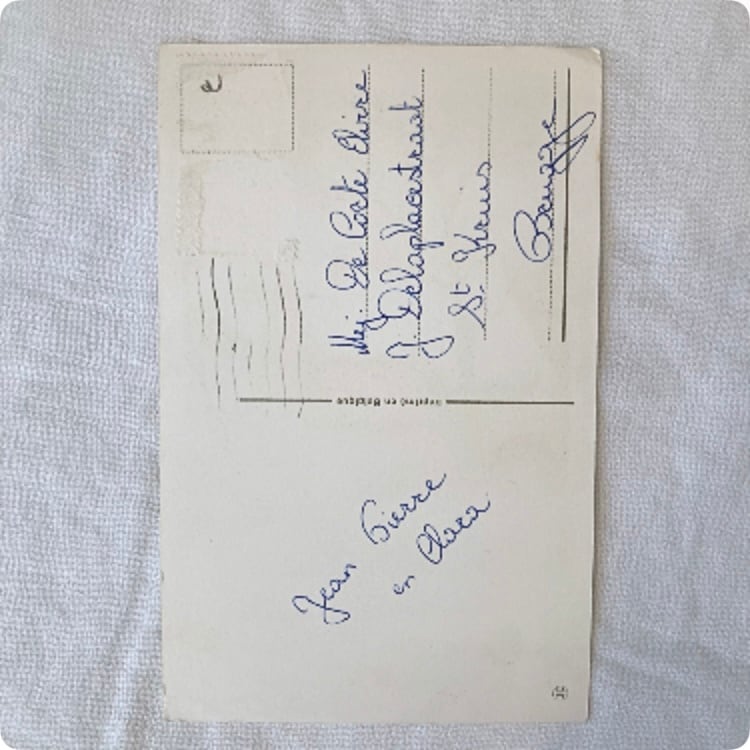 Jean Pierre
en Clara
Imprimé en Belgique
Mej. De Corte Elvire
J Delaplacestraat
St. Kruis
Brugge